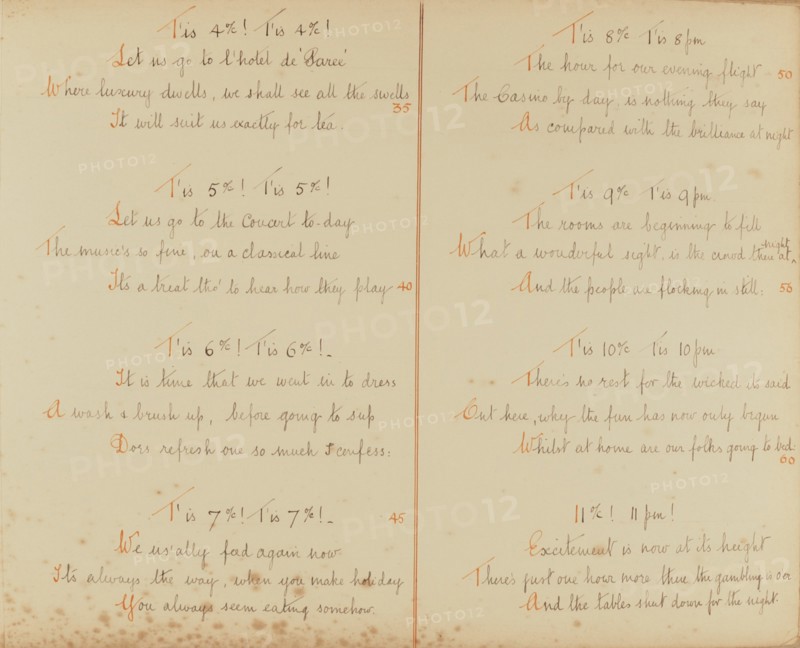 T'is 4%! T'is 4%!
Let us go to l'hotel de' Paree'
Where luxury dwells, we shall see all the swells
35
It will suit us exactly for tea.
T'is 5%! T'is 5%!
Let us go to the Concert to-day
The music's so fine, on a classical line
Its a treat tho' to hear how they play 40
T'is 6%! T'is 6%!_
It is time that we went in to dress
A wash & brush up, before going to sup
Does refresh one so much I confess:
T'is 7%! T'is 7%!_ 45
We us'ally feed again now
Its always the way, when you make holiday
You always seem eating somehow.
T'is 8% T'is 8 pm
The hour for our evening flight 50
The Casino by day, is nothing they say
As compared with the brilliance at night
T'is 9% T'is 9 pm
The rooms are beginning to fill
What a wonderful sight, is the crowd there at ^night
And the people are flocking in still: 55
T'is 10% Tis 10 pm
There's no rest for the wicked its said
Out here, why the fun has now only begun
Whilst at home are our folks going to bed
60
11%! 11 pm!
Excitement is now at its height
There's just one hour more then the gambling is o'er
And the tables shut down for the night.
PHOTO12